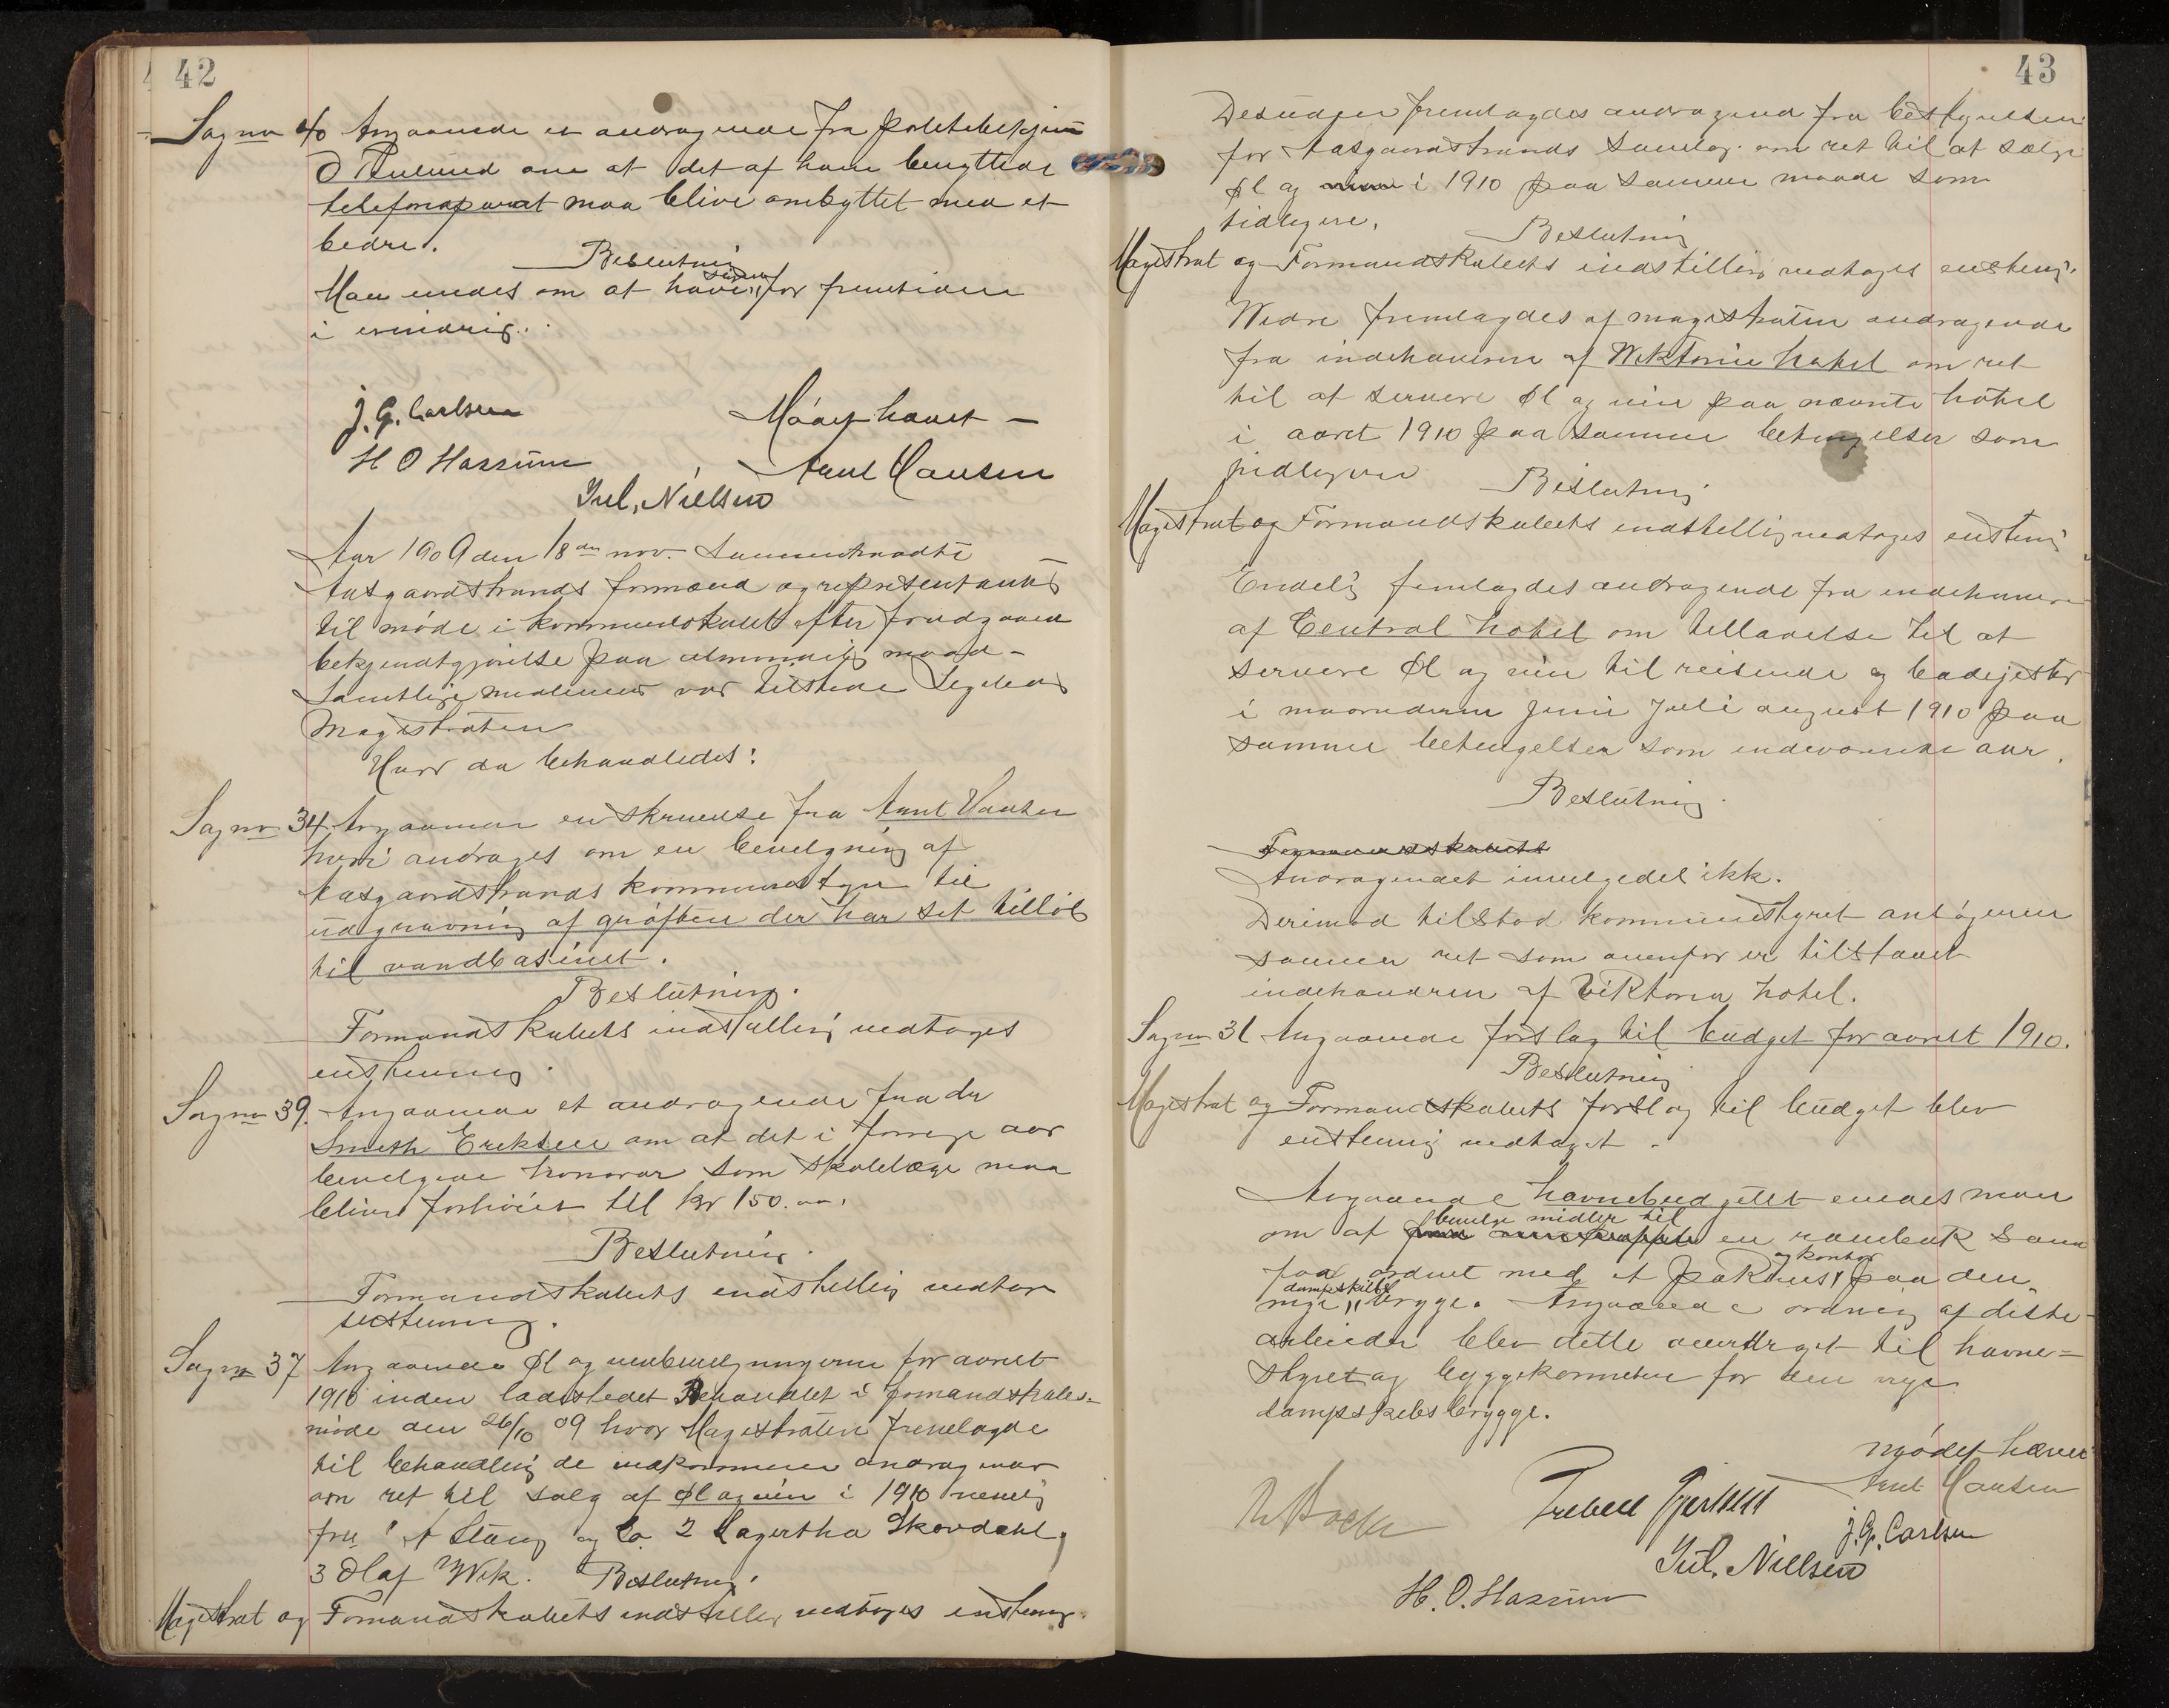 42
Sag no 40 Angaaende et andragende fra politibetjent
O om at det af ham benyttede
telefonaparat maa blive ombyttet med et
bedre.
Beslutning
Man enedes om at have sagen for fremtiden
i erindring.
J. G. Carlsen
Mødet hævet –
H O Hassum
Amt Hansen
Jul. Nielsen
Aar 1909 den 18de nov. sammentraadte
Aasgaardstrands formænd og representanter
til møde i kommunelokalet efter forudgaaend
bekjendtgjørelse paa almindelig maade –
Samtlige medlemmer var tilstede ligeledes
Magistraten
Hvor da behandledes:
Sag no 34 Angaaende en skrivelse fra Amt Hansen
hvori andrages om en bevilgning af
Aasgaardstrands kommunestyre til
udgravning af grøften der har set tilløb
til vandbasinet.
Beslutning.
Formandskabets indstilling vedtoges
enstemmig.
Sag no 39. Angaaende et andragende fra dr
Smith Eriksen om at det i forrige aar
bevilgede honorar som skolelæge maa
blive forhøiet til kr 150.00.
Beslutning.
Formandskabets indstilling vedtoges
enstemmig.
Sag no 37 Angaaende Øl og vinbevilgningerne for aaret
1910 inden ladestedet Behandlet i formandskabs-
møde den 26/10 09 hvor Magistraten fremlagde
til behandling de indkommne andragender
om ret til salg af øl og vin i 1910 nemlig
fra 1 A Stang og Co 2 Lagertha Skovdahl,
3 Olaf Wik. Beslutning.
Magistrat og Formandskabets indstilling vedtoges enstemmig.
43
Desuden fremlagdes andragend fra bestyrelsen
for Aasgaardstrands Samlag om ret til at sælge
Øl og vin i 1910 paa samme maade som
tidligere.
Beslutning
Magistrat og Formandskabets indstilling vedtoges enstemmig.
Vidre fremlagdes af magistraten andragende
fra indehaveren af Wiktoria hotel om ret
til at servere Øl og vin paa nævnte hotel
i aaret 1910 paa samme betingelser som
tidligere
Beslutning
Magistrat og Formandskabets indstilling vedtoges enstemmig
Endelig fremlagdes andragende fra indehaveren
af Central hotel om tilladelse til at
servere Øl og vin til reisende og badegjester
i maanederne Juni Juli august 1910 paa
samme betingelser som indeværende aar.
Beslutning.
Formandskabets
Andragendet innvilgedes ikke.
Derimod tilstod kommunestyret ansøgeren
samme ret som ovenfor er tilstaaet
indehaveren af Viktoria hotel.
Sag no 31 Angaaende forslag til budget for aaret 1910.
Beslutning
Magistrat og Formandskabets forslag til budget blev
enstemmig vedtaget.
Angaaende havnebudgettet enedes man
om at bevilge midler til en rambuk samt
faa ordnet med et pakhus og kontor paa den
nye dampskibs brygge. Angaaende ordning af disse
arbeider blev dette overdraget til havne=
styret og byggekomiteen for den nye
dampskibsbrygge.
Mødet hævet
Amt Hansen
J. G. Carlsen
Jul. Nielsen
H. O. Hassum